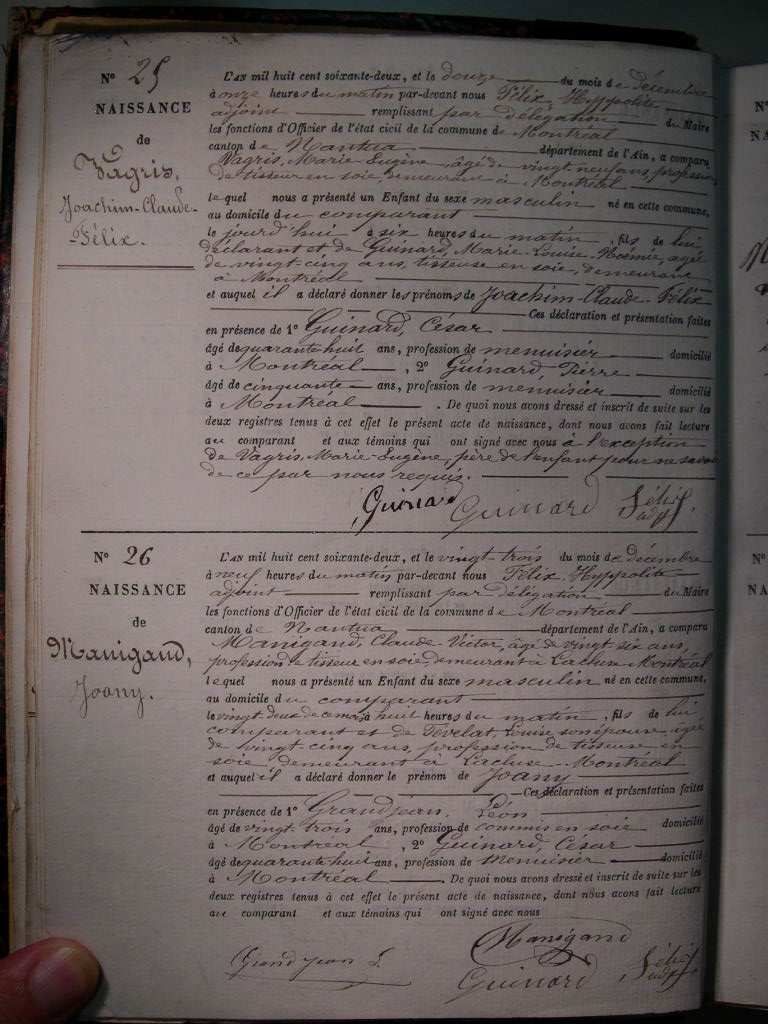 N° 25
NAISSANCE
de
Vagris,
Joachim-Claude-
-Félix.
L'AN mil huit cent soixante-deux, et le douze du mois de décembre
à onze heures du matin par-devant nous Félix, Hyppolite
adjoint remplissant par délégation du Maire
les fonctions d'Officier de l'état civil de la commune de Montréal
canton de Nantua département de l'Ain, a comparu
Vagris, Marie-Eugène, âgé de vingt neuf ans, profession
de tisseur en soie demeurant à Montréal
lequel nous a présenté un Enfant du sexe masculin né en cette commune,
au domicile du comparant
le jourd'hui à six heures du matin, fils de lui
déclarant et de Guinard, Marie-Louise-Noémie, agée
de vingt-cinq ans, tisseuse en soie, demeurant
à Montréal
et auquel il a déclaré donner les prénoms de Joachim-Claude-Félix
Ces déclaration et présentation faites
en présence de 1° Guinard, César
âgé de quarante-huit ans, profession de menuisier domicilié
à Montréal, 2° Guinard, Pierre
âgé de cinquante ans, profession de menuisier domicilié
à Montréal. De quoi nous avons dressé et inscrit de suite sur les
deux registres tenus à cet effet le présent acte de naissance, dont nous avons fait lecture
au comparant et aux témoins qui ont signé avec nous à l'exception
de Vagris, Marie-Eugène, père de l'enfant pour ne savoir
de ce par nous requis.
Guinard Guinard Félix
adj.
N° 26
NAISSANCE
de
Manigand,
Joany.
L'AN mil huit cent soixante-deux, et le vingt trois du mois de décembre
à neuf heures du matin par-devant nous Félix, Hyppolite
adjoint remplissant par délégation du Maire
les fonctions d'Officier de l'état civil de la commune de Montréal
canton de Nantua département de l'Ain, a comparu
Manigand, Claude-Victor, âgé de vingt six ans,
profession de tisseur en soie, demeurant à Lacluse-Montréal
lequel nous a présenté un Enfant du sexe masculin né en cette commune,
au domicile du comparant
le vingt deux de ce mois à huit heures du matin, fils de lui
comparant et de Louise son épouse, agée
de vingt cinq ans, profession de tisseuse en
soie demeurant à Lacluse-Montréal
et auquel il a déclaré donner le prénom de Joany
Ces déclaration et présentation faites
en présence de 1° Grandjean, Léon
âgé de vingt trois ans, profession de commis en soie domicilié
à Montréal, 2° Guinard, César
âgé de quarante huit ans, profession de Menuisier domicilié
à Montréal. De quoi nous avons dressé et inscrit de suite sur les
deux registres tenus à cet effet le présent acte de naissance, dont nous avons fait lecture
au comparant et aux témoins qui ont signé avec nous
Manigand
Grand jean L. Guinard Félix
adj.